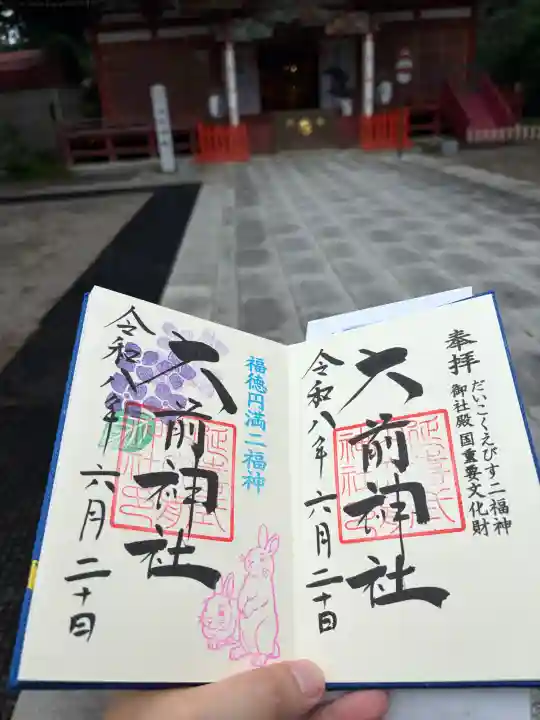 奉拝
だいこくえびす二福神
御社殿国重要文化財
大前神社
令和八年六月二十日
福徳円満二福神
大前神社
令和八年六月二十日